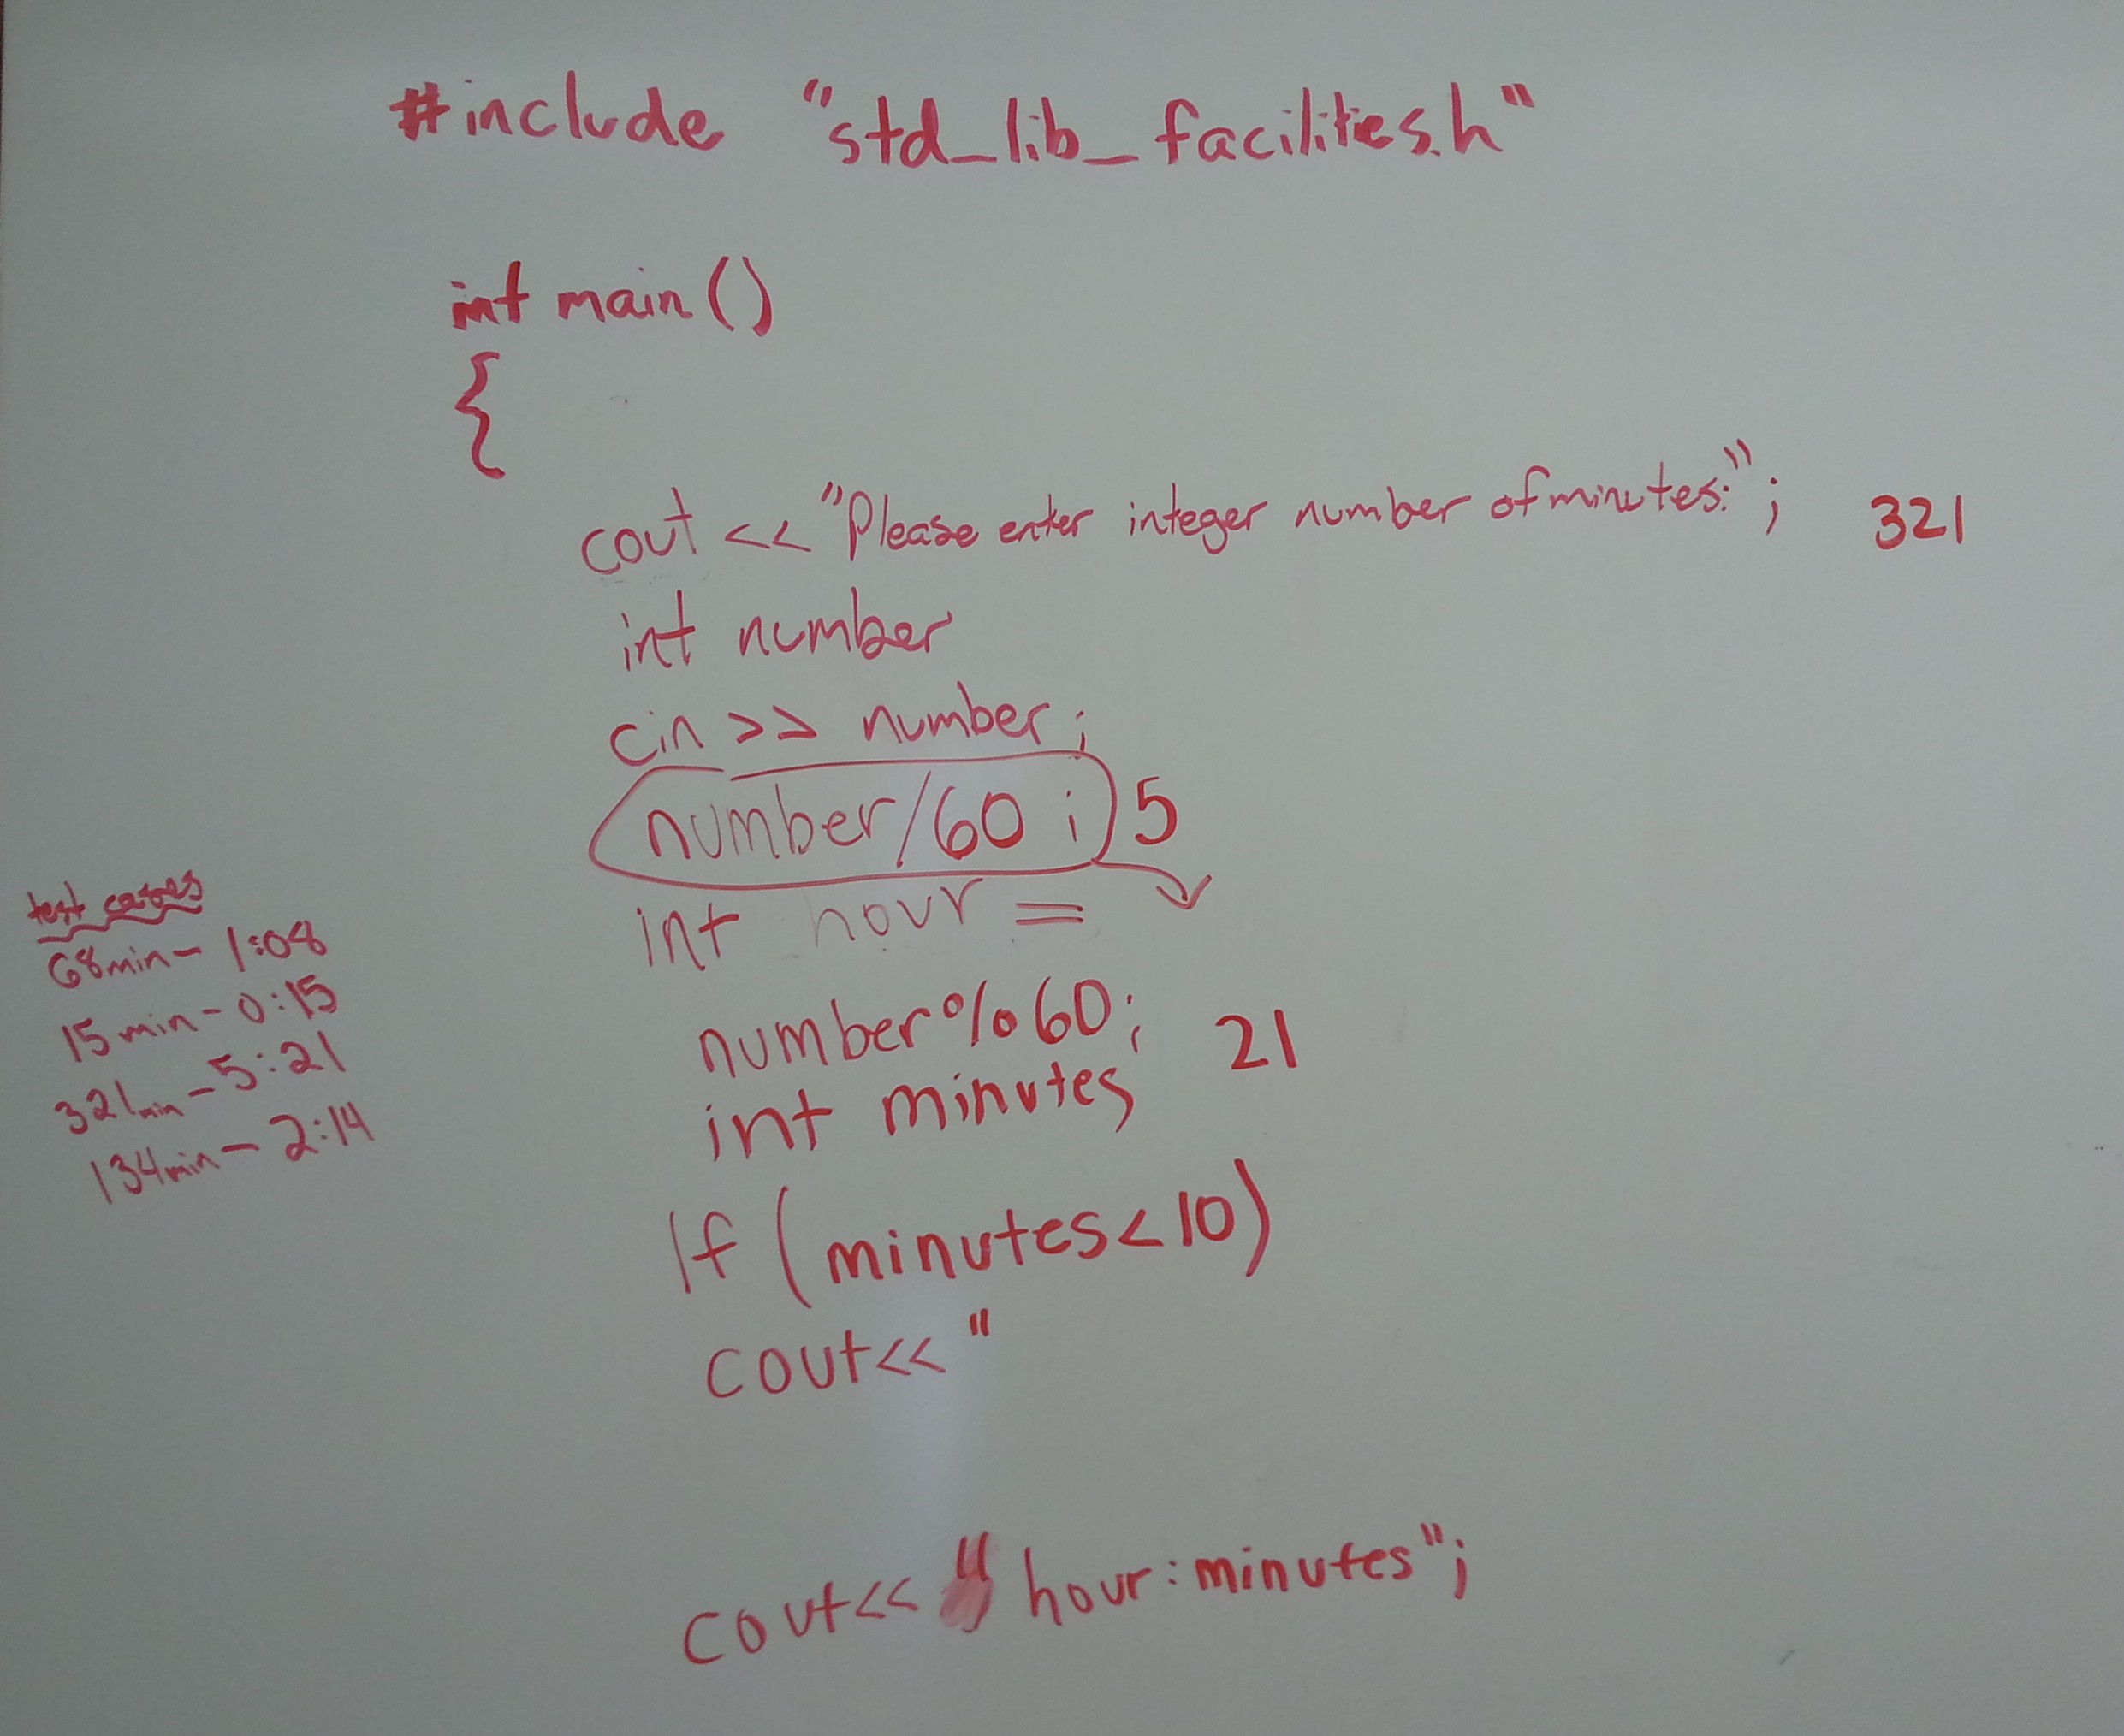 #include "std_lib_facilities.h"
int main()
{
cout << "Please enter integer number of minutes:"; 321
int number
cin >> number;
number/60; 5
int hour =
number%60; 21
int minutes
If (minutes<10)
cout<<"
cout<<" hour:minutes";
test cases
68min- 1:08
15min- 0:15
321min- 5:21
134min- 2:14